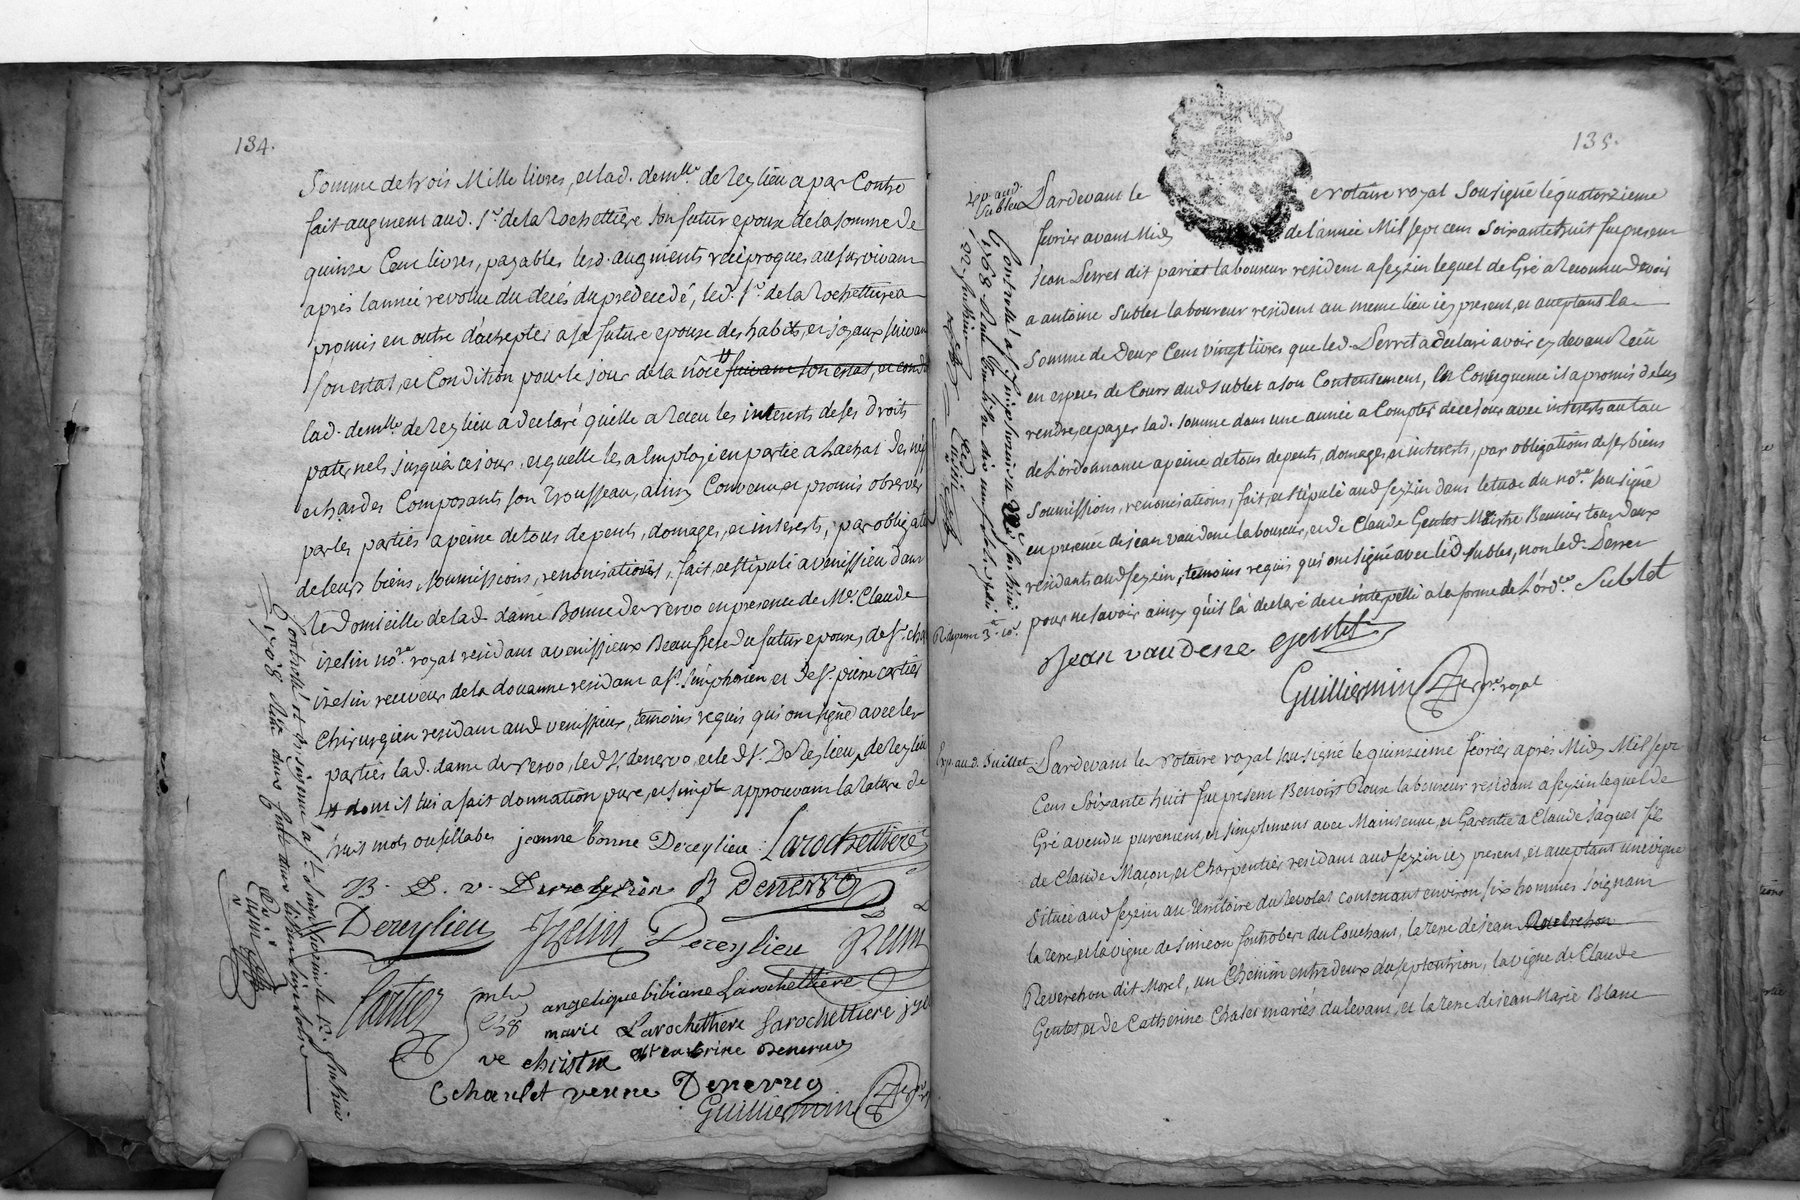 134.
Somme de trois Mille livres, et lad. demlle. de Reylieu a par Contre
fait augment aud. Sr. de la Rochettiere son futur epoux de la somme de
quinze Cent livres, payables lesd. augments reciproques au survivant
après l'année revolue du decés du predecedé, led. Sr. de la Rochettiere a
promis en outre d'achepter a sa future epouse des habits, et joyaux suivant
son estat, et Condition pour le jour de la nôce suivant son estat, et cond
lad. demlle. de Reylieu a declaré qu'elle a receu les interests de ses droits
paternels jusqu'a ce jour, et quelle les a Employé en partie a l'achat des
et hardes Composants son Trousseau, ainsy Convenu et promis observer
par les parties a peine de tous depents, domages, et interests, par obligation
de leurs biens, soumissions, renonciations, fait, et stipulé a venissieu dans
le domicille de lad. dame Bonne de nervo en presence de Me. Claude
izelin nore. royal residant a venissieux Beaufrere du futur epoux, de Sr.
izelin receveur de la douanne residant a St. Simphorien et de Sr. pierre cartier
Chirurgien residant aud venissieux, temoins requis qui ont signé avec les
parties lad. dame de nervo, led Sr. denervo, et led Sr. De Reylieu de Reylieu
dont il lui a fait donnation pure, et simple approuvant la rature de
trois mots ou sillabes jeanne bonne Dereylieu Larochettiere
B. Denervo
Dereylieu Izelin Dereylieu
Cartier
angelique bibiane Larochettiere
marie Larochettiere Larochettiere
ve christine Denervo
Echarlet venne Denervo
Guilliermin
135.
Exp. aud. Sublet
Pardevant le notaire royal Sousigné le quatorzieme
fevrier avant Midy de l'année Mil sept cens Soixante huit fut present
Jean Perret dit pariet laboureur resident a feyzin lequel de Gré a reconnu devoir
a antoine Sublet laboureur resident au meme lieu icy present, et acceptant la
Somme de Deux Cens vingt livres que led. Perret a declaré avoir cy devant Reçu
en especes de Cours dud Sublet a son Contentement, En Consequence il a promis de luy
rendre, et payer lad. somme dans une année a Compter de ce jour avec interests au taux
de l'ordonnance a peine de tous depents, domages, et interests, par obligations de ses biens
Soumissions, renonciations, fait, et stipulé aud feyzin dans letude du nore. sousigné
en presence de jean vaudene laboureur, et de Claude Gentet Maistre Bennier tous deux
residants aud feyzin, temoins requis qui ont signé avec led Sublet, non led. Perret
pour ne savoir ainsy qu'il l'a declaré de ce interpellé a la forme de L'ordce. Sublet
Jean vaudene gentet
Guilliermin nre. royal
Exp. aud. Juillet
Pardevant le notaire royal sousigné le quinzieme fevrier après Midy Mil sept
Cens Soixante huit fut present Benoist Roux laboureur residant a feyzin lequel de
Gré a vendu purement, et simplement avec Maintenue, et Garentie a Claude Jaques fils
de Claude Maçon, et Charpentier residant aud feyzin icy present, et acceptant une vigne
Située aud feyzin au territoire du revolet contenant environ six hommes joignant
la terre, et la vigne de simeon fontrobert du Couchant, la terre de jean Reverchon
Reverchon dit Morel, un Chemin entredeux du septentrion, la vigne de Claude
Gentet, et de Catherine Chalet mariés du levant, et la terre de jean Marie Blanc